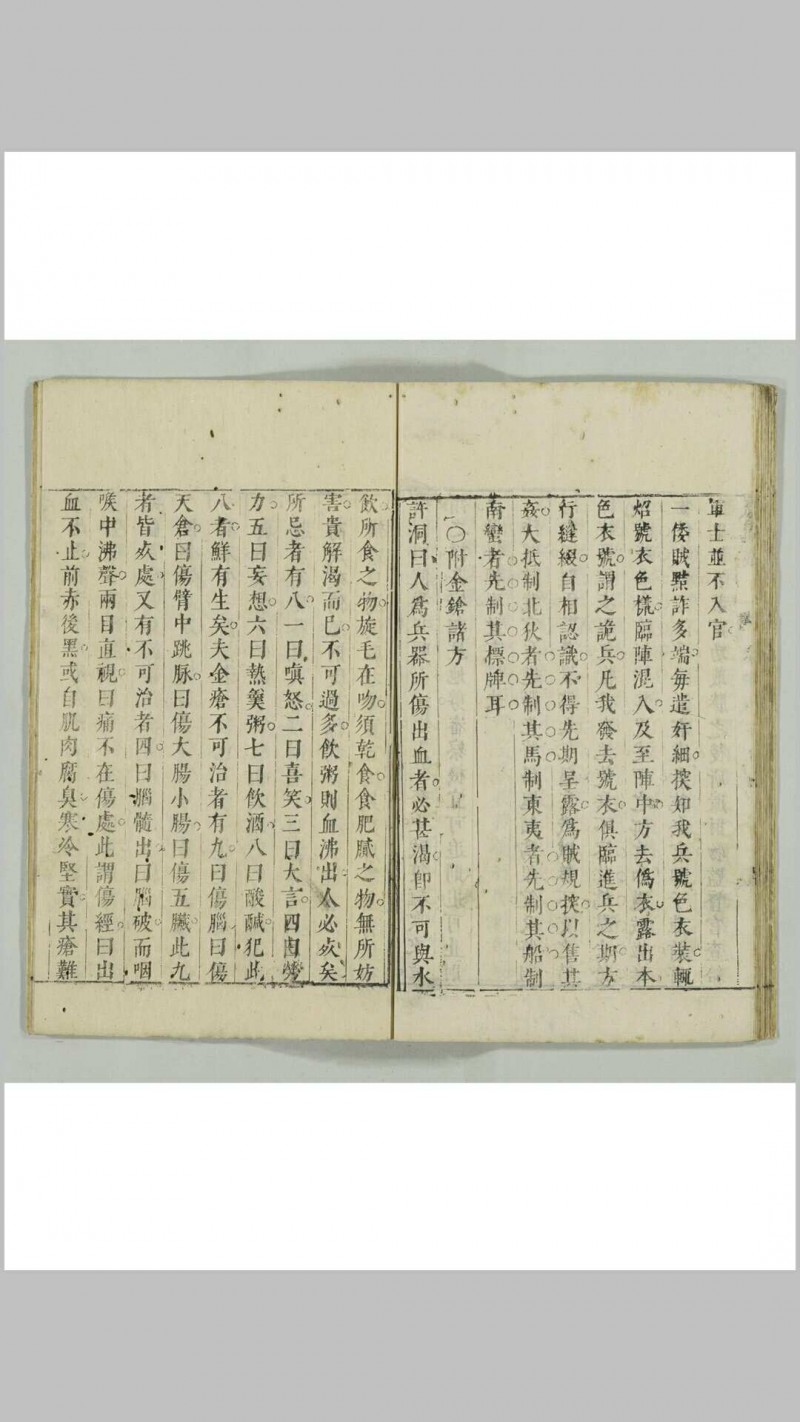 軍士並不入官
一倭賊黠詐多端每遣奸細探知我兵號色衣裝輒
炤號衣色樣臨陣混入及至陣中方去僞衣露出本
色衣號謂之詭兵凡我發去號衣俱臨進兵之期方
行縫綴自相認識不得先期呈露爲賊規探以售其
姦大抵制北狄者先制其馬制東夷者先制其船制
南蠻者先制其標牌耳
〇附金鎗諸方
許洞曰人爲兵器所傷出血者必甚渴卽不可與水
飲所食之物旋毛在吻須乾食食肥膩之物無所妨
害貴解渴而已不可過多飲粥則血沸出人必死矣
所忌者有八一曰嗔怒二曰喜笑三曰大言四曰勞
力五曰妄想六曰熱羹粥七曰飲酒八曰酸鹹犯此
八者鮮有生矣夫金瘡不可治者有九曰傷腦曰傷
天倉曰傷臂中跳脉曰傷大腸小腸曰傷五臟此九
者皆死處又有不可治者四曰腦髓出曰腦破而咽
喉中沸聲兩目直視曰痛不在傷處此謂傷經曰出
血不止前赤後黑或白肌肉腐臭寒冷堅實其瘡難